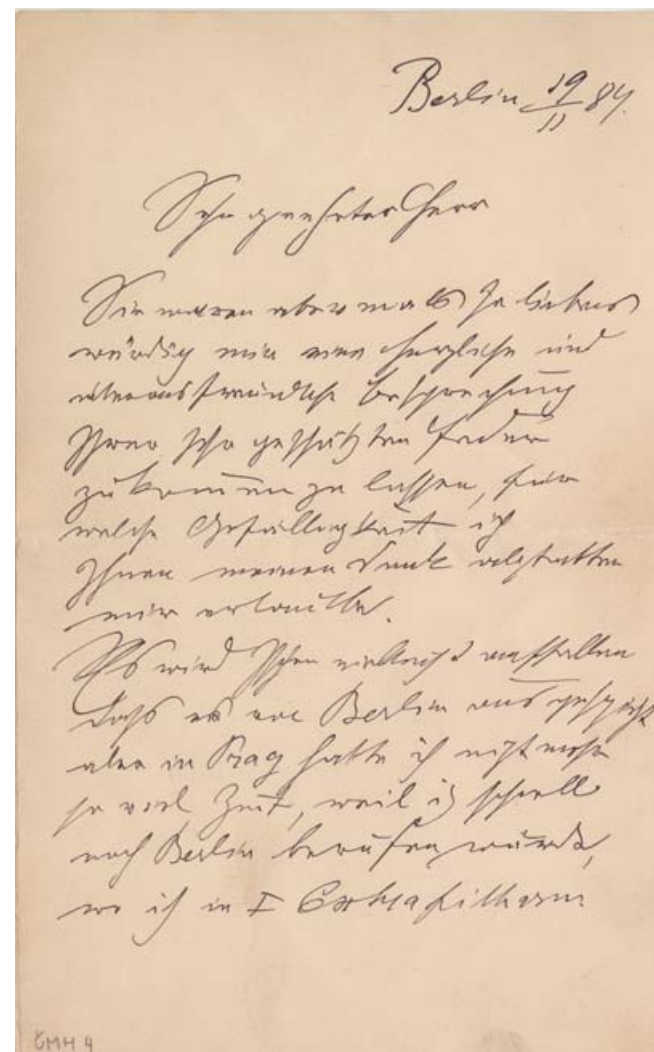 Berlin 19/11 84.
Sehr geehrter Herr
Sie waren abermals so liebens
würdig mir eine herzliche und
überaus freundliche Besprechung
Ihrer sehr geschätzten Feder
zukommen zu lassen, für
welche Gefälligkeit ich
Ihnen meinen Dank abzustatten
mir erlaube.
Es wird Ihnen vielleicht auffallen
dass es von Berlin aus geschieht
aber in Prag hatte ich nicht mehr
so viel Zeit, weil ich schnell
nach Berlin berufen wurde,
wo ich in I
ČMH 4